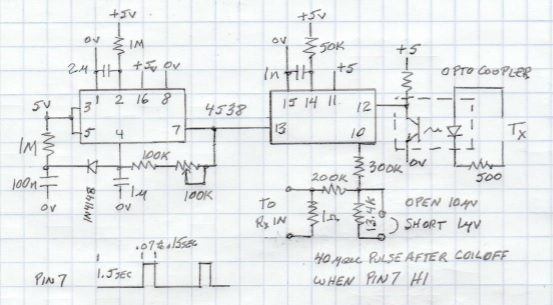 +5V
+5V
0V
1M
0V
50K
+5
2.4
+5V 0V
1n
+5
OPTO COUPLER
1 2 16 8
15 14 11
5V
3
4538
12
5
7
13
Tx
1M
4
10
0V
100K
300K
500
100n
200K
1N4148
1M
100K
TO
OPEN 10µV
0V
0V
RX IN
1Ω
13.4K
SHORT 1µV
.07 to .15SEC
40µSEC PULSE AFTER COIL OFF
PIN 7
1.5SEC
WHEN PIN 7 HI